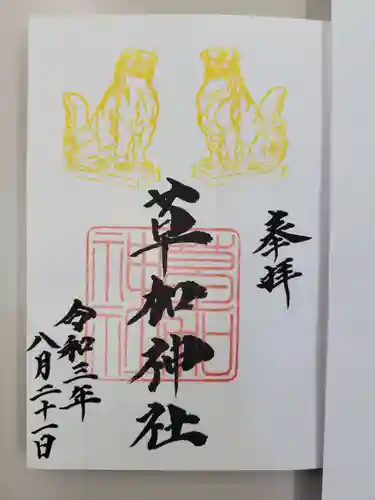 奉拝
草加神社
令和三年
八月二十一日